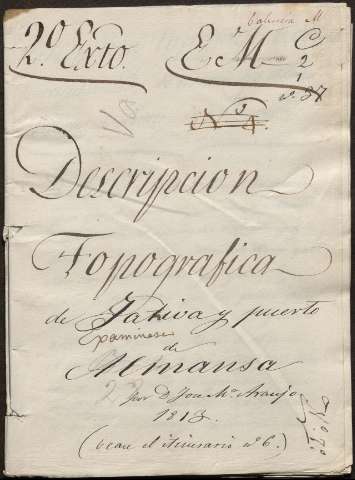 Valencia M
2º Exto. E. M. C
2
1
nº 37
Nº 4.
Descripcion
Topografica
de Jativa y puerto
de
Almansa
por Dn Jose Mª Araujo
1813.
(vease el itinerario nº 6.)